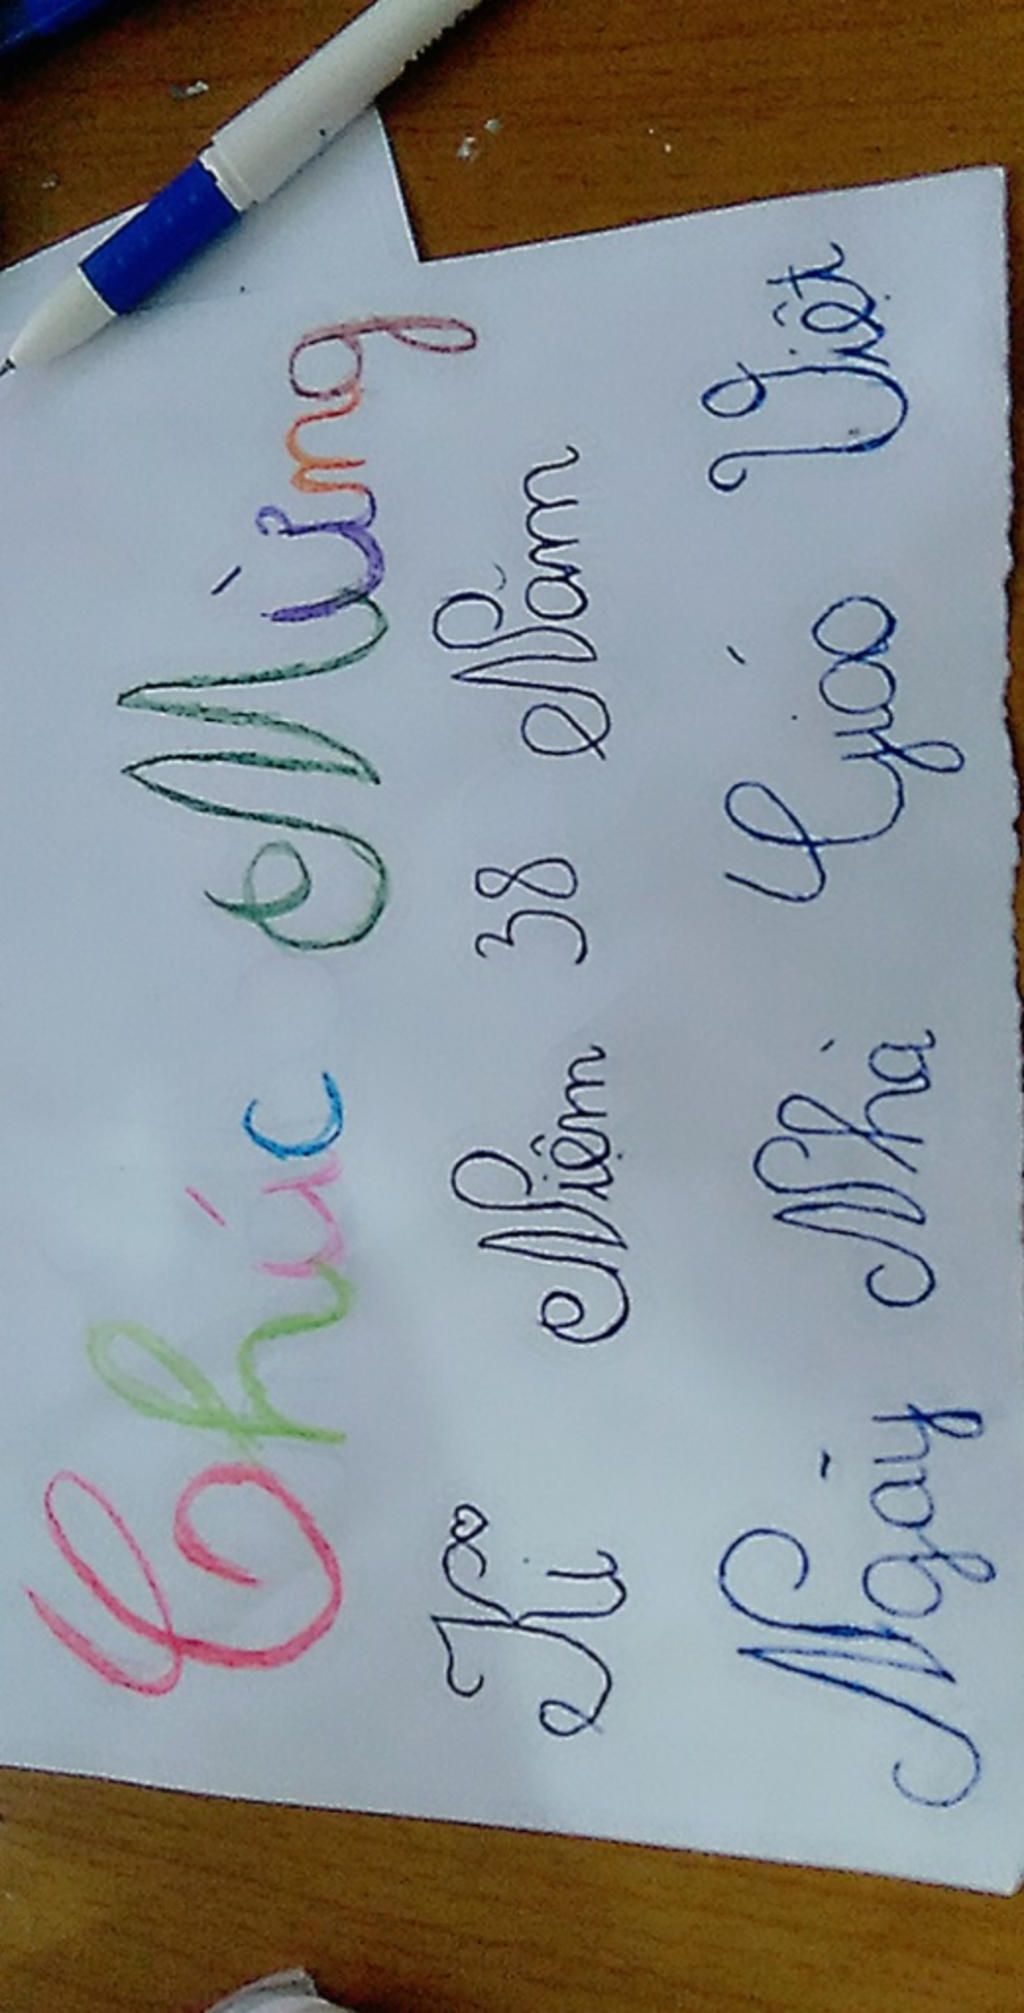 Chúc Mừng
Kỉ Niệm 38 Năm
Ngày Nhà Giáo Việt